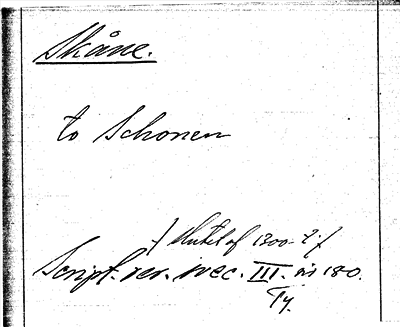 Skåne.
to Schonen
) Slutet af 1300-t:f
Script. rer. svec. III. nis 180.
Ty.